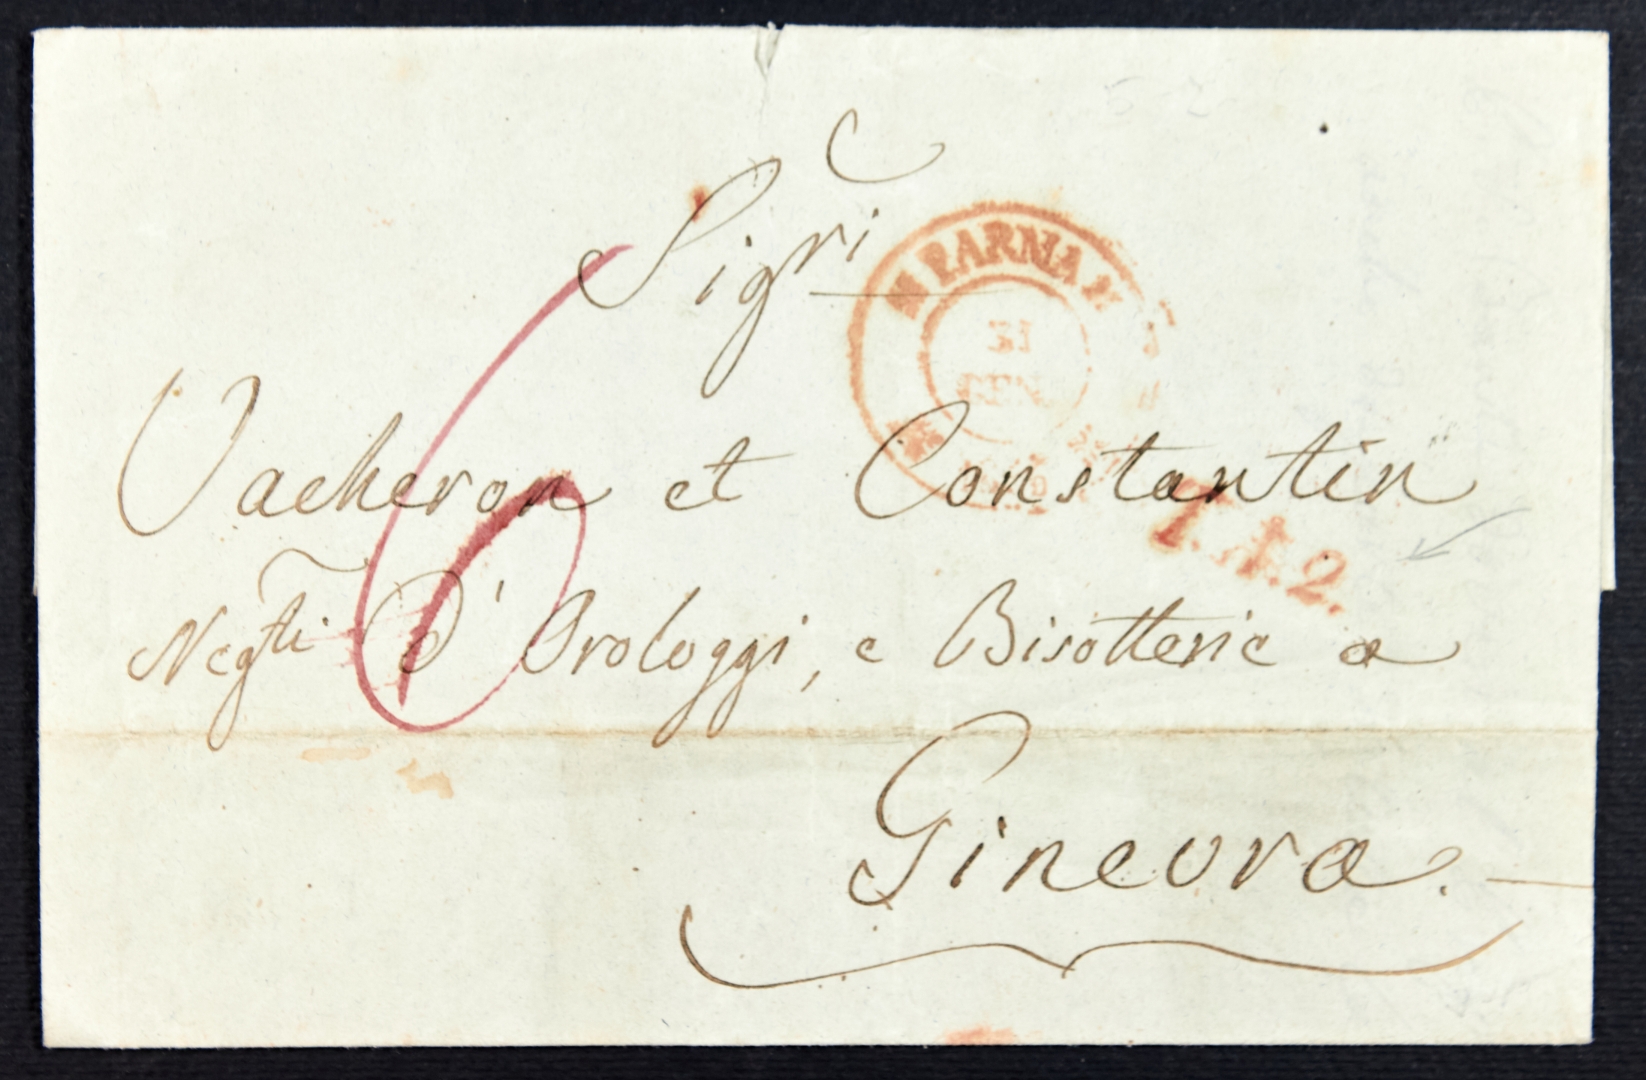 Sigri
Vacheron et Constantin
Negti d'Orologgi, e Bisotterie a
Ginevra.
31
GEN.
T.A.2.
6